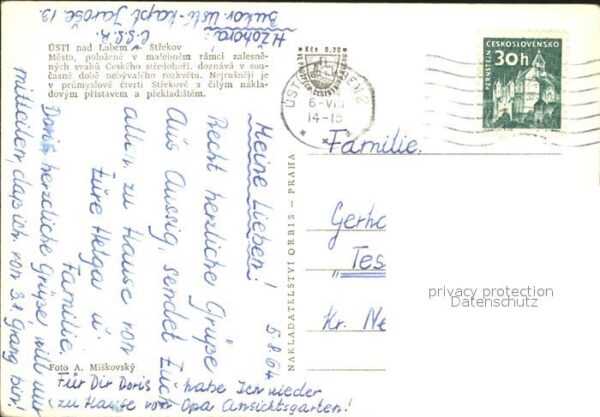 H. Žohorá:
Bukov Ústí - Kapt. Jaroše 13.
Č.S.S.R.
ÚSTÍ nad Labem — Střekov
Město, položené v malebném rámci zalesně-
ných svahů Českého středohoří, doznává v sou-
časné době nebývalého rozkvětu. Nejrušnější je
v průmyslové čtvrti Střekově s čilým nákla-
dovým přístavem a překladištěm.
Kčs 0,20
6-VIII
14-15
ČESKOSLOVENSKO
30h
PERNŠTEJN
Meine Lieben! 5.8.64
Recht herzliche Grüße
Aus Aussig, sendet Euch
allen zu Hause von
Eure Helga u.
Familie.
Doris herzliche Grüße will nur
mitteilen, daß ich von 3.8 Gang bin!
Für Dir Doris habe Ich wieder
zu Hause vom Opa Ansichtsgarten!
Foto A. Miškovský
NAKLADATELSTVÍ ORBIS — PRAHA
Familie.
Gerha
Tes
Kr. Ne
privacy protection
Datenschutz